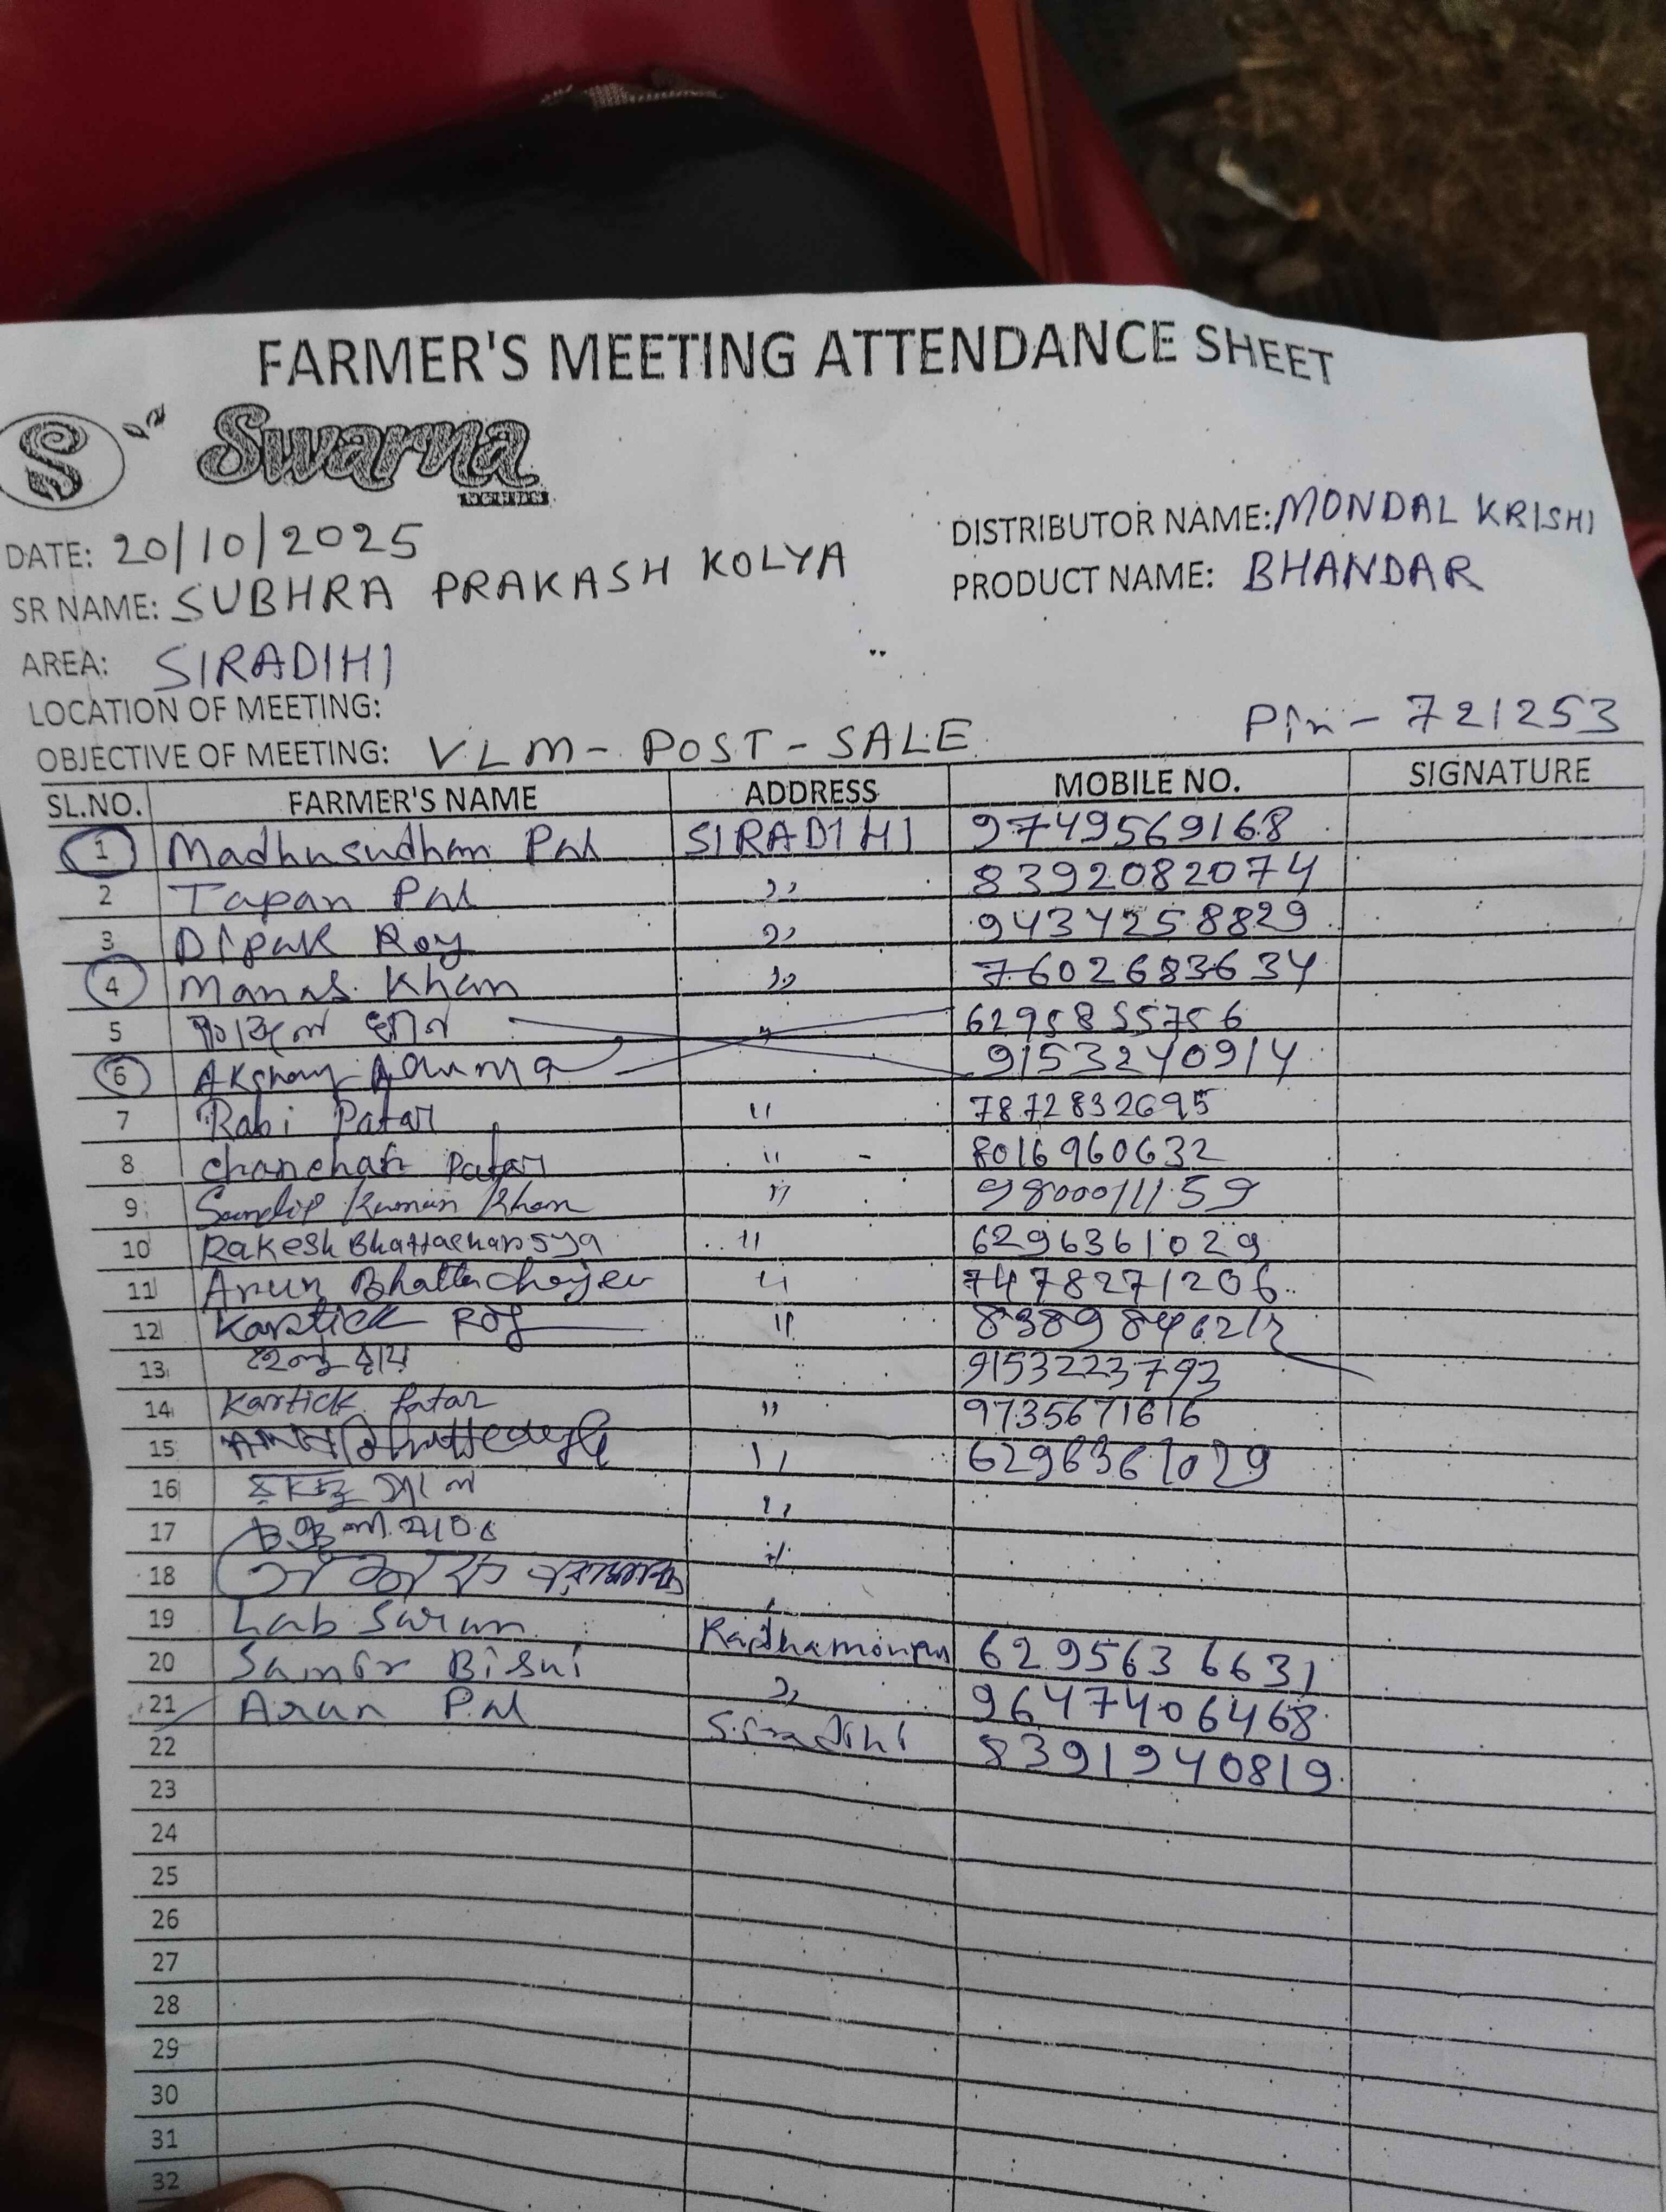 FARMER'S MEETING ATTENDANCE SHEET
S Swarna
DATE: 20/10/2025
DISTRIBUTOR NAME: MONDAL KRISHI
SR NAME: SUBHRA PRAKASH KOLYA
PRODUCT NAME: BHANDAR
AREA: SIRADIHI
LOCATION OF MEETING:
Pin - 721253
OBJECTIVE OF MEETING: VLM - POST - SALE
SL.NO. FARMER'S NAME ADDRESS MOBILE NO. SIGNATURE
1 Madhusudhan Pal SIRADIHI 9749569168
2 Tapan Pal ,, 8392082074
3 Dipak Roy ,, 9434258829
4 Manas Khan ,, 7602683634
5 " 6295855756
6 Akshay 9153240914
7 Rabi Patar " 7872832695
8 Patar " - 8016960632
9 Sandip Kuman Khan " 9800011159
10 Rakesh Bhattacharsya " 6296361029
11 Arun " 7478271206
12 Karstick Roy "
13 রায় 9153223793
14 Kartick Patar " 9735671616
15 " 6296361029
16 "
17 "
18
19 Lab
20 Samir Bisui 6295636631
21 Arun Pal ,, 9647406468
22 Siradihi 8391940819
23
24
25
26
27
28
29
30
31
32